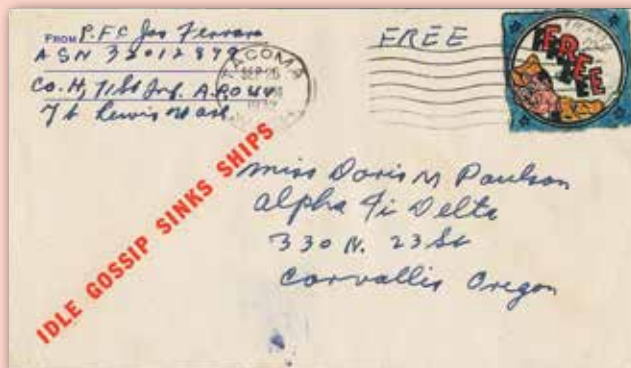 FROM P.F.C. Jos Ferrara
ASN 32012879
Co. H, 71st Inf. A.P.O 44
Ft Lewis Wash
TACOMA
SEP 25
FREE
FREE
IDLE GOSSIP SINKS SHIPS
Miss Doris M Paulson
Alpha Fi Delta
330 N. 23 St
Corvallis Oregon